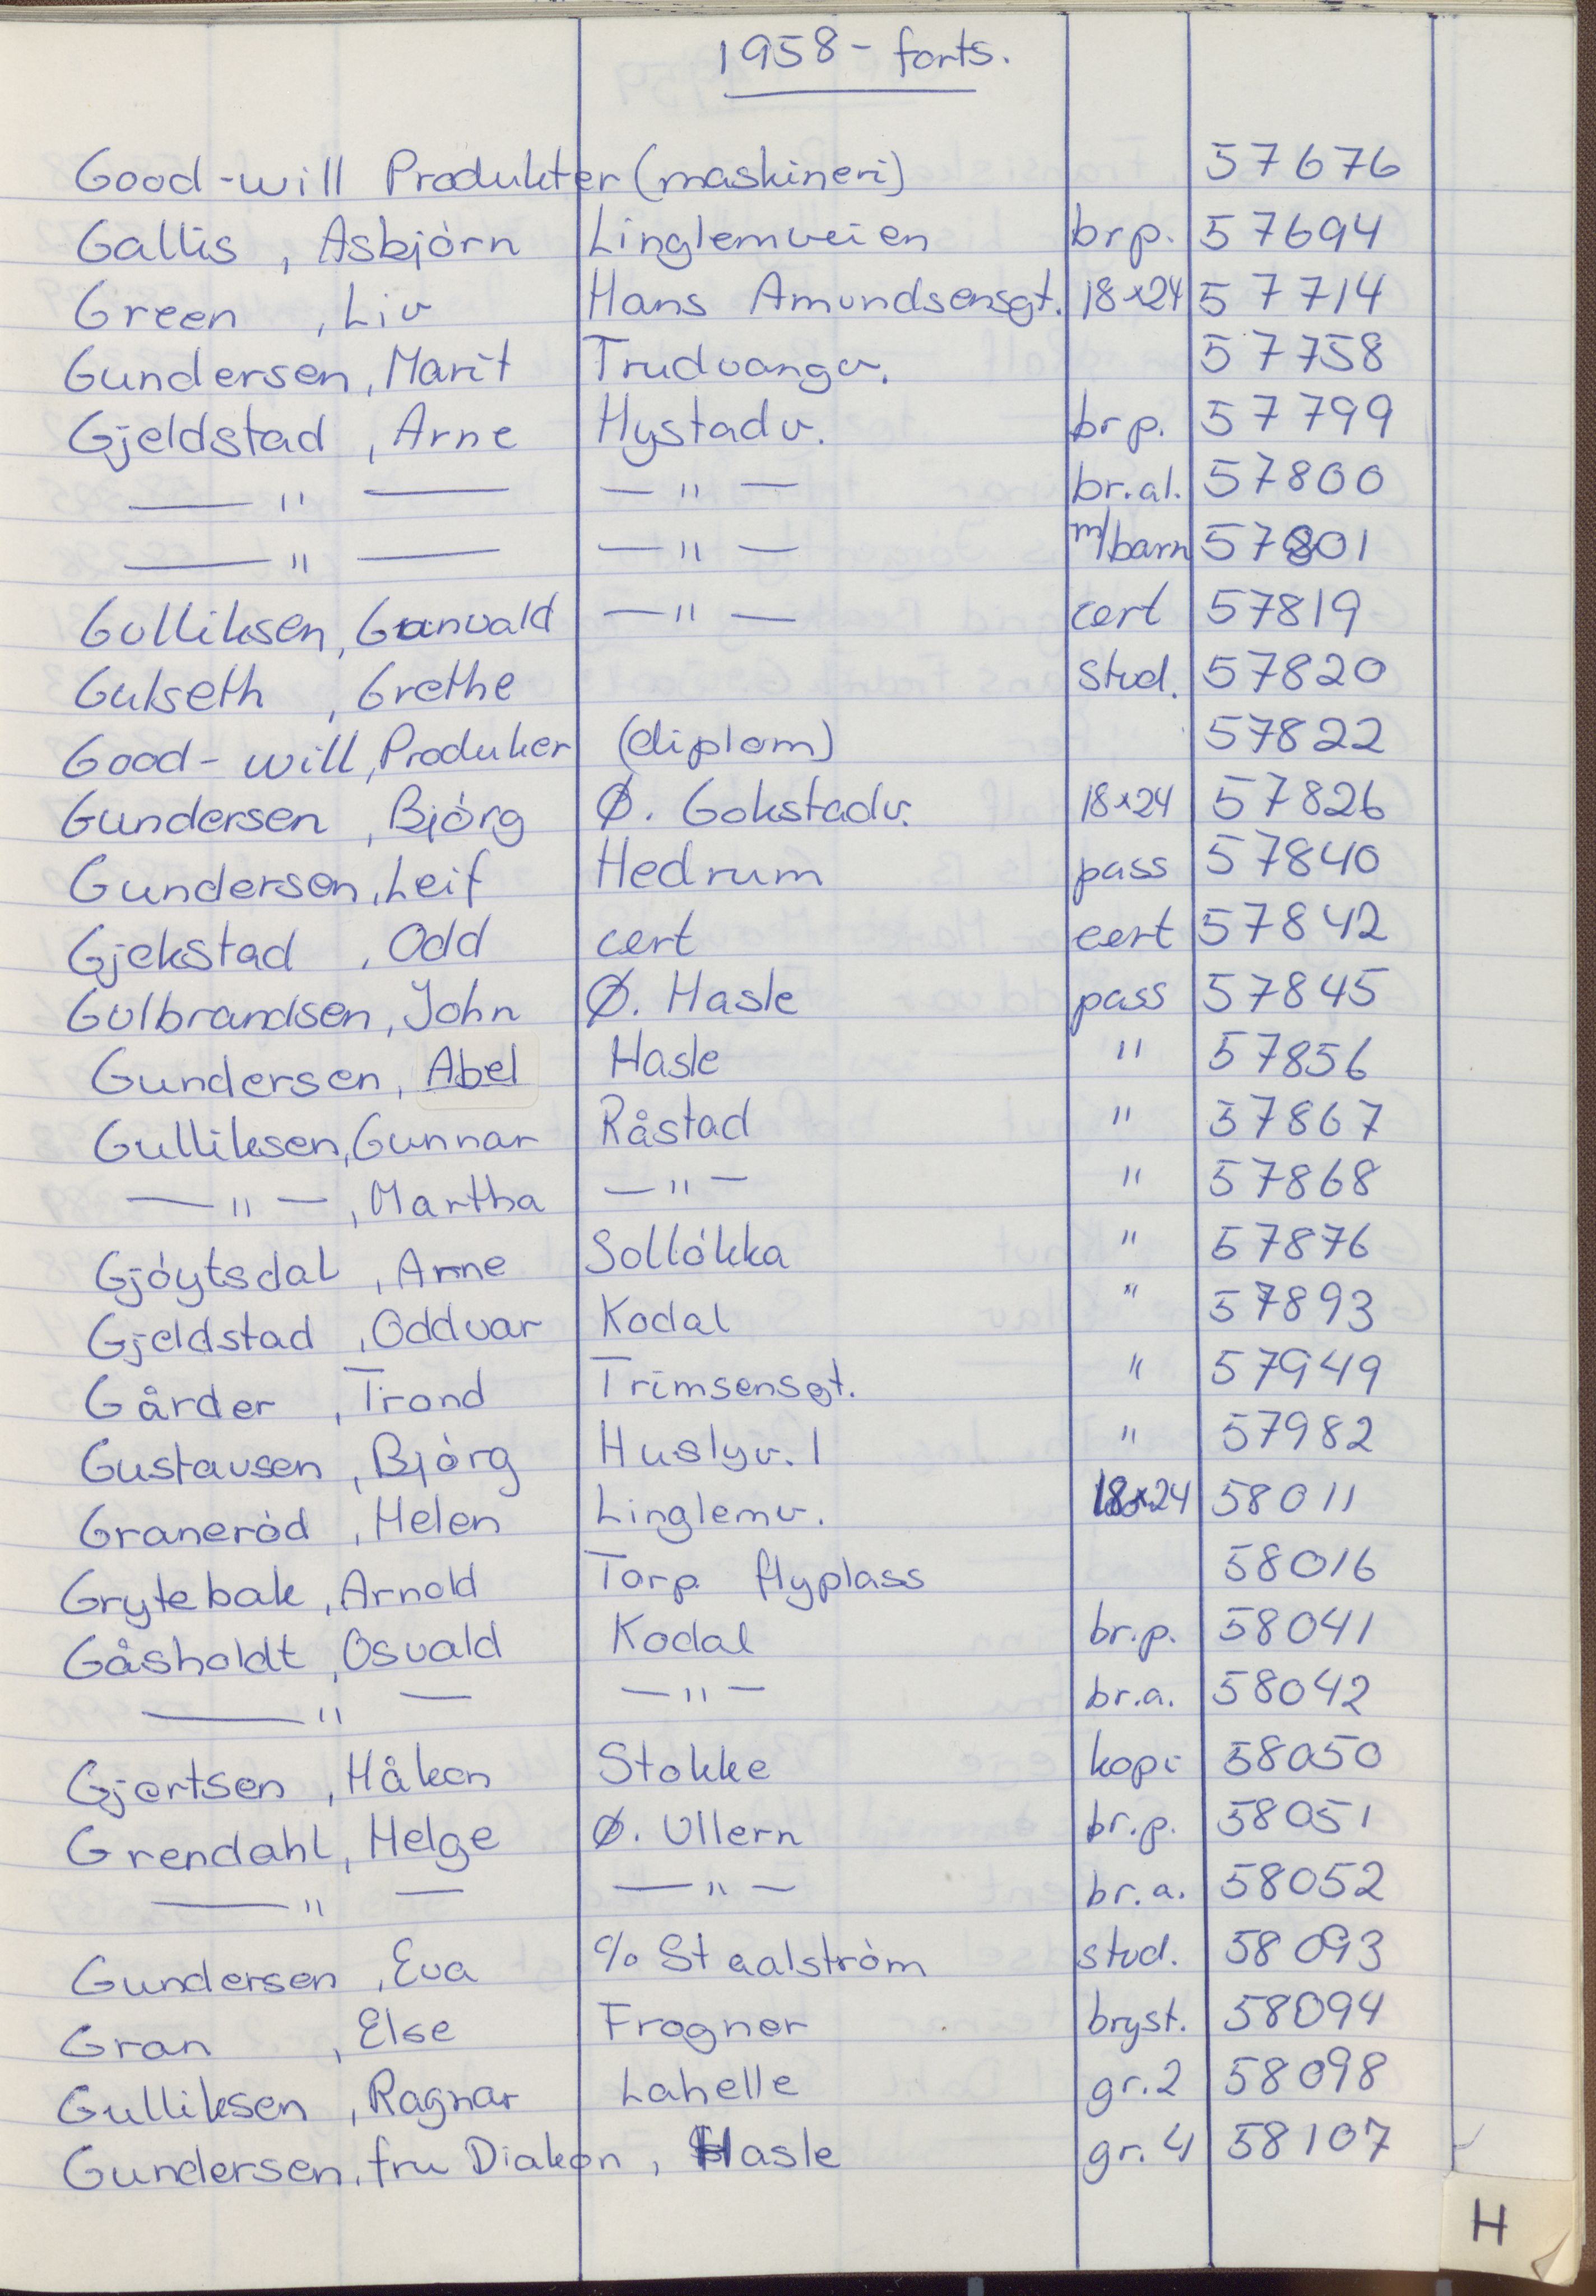 1958 - forts.
Good-will Produkter (maskineri) 57676
Gallis, Asbjörn Linglemveien brp. 57694
Green, Liv Hans Amundsensgt. 18x24 57714
Gundersen, Marit Trudvangv. 57758
Gjeldstad, Arne Hystadv. brp. 57799
— " — — " — br.al. 57800
— " — — " — m/barn 57801
Gulliksen, Gunvald — " — cert 57819
Gulseth, Grethe stud. 57820
Good-will, Produker (diplom) 57822
Gundersen, Björg Ø. Gokstadv. 18x24 57826
Gundersen, Leif Hedrum pass 57840
Gjekstad, Odd cert cert 57842
Gulbrandsen, John Ø. Hasle pass 57845
Gundersen, Abel Hasle " 57856
Gulliksen, Gunnar Råstad " 57867
— " —, Martha — " — " 57868
Gjöytsdal, Arne Sollökka " 57876
Gjeldstad, Oddvar Kodal " 57893
Gårder, Trond Trimsensgt. " 57949
Gustavsen, Björg Huslyv. 1 " 57982
Graneröd, Helen Linglemv. 18x24 58011
Grytebak, Arnold Torp flyplass 58016
Gåsholdt, Osvald Kodal br.p. 58041
— " — — " — br.a. 58042
Gjertsen, Håkon Stokke kopi 58050
Grendahl, Helge Ø. Ullern br.p. 58051
— " — — " — br.a. 58052
Gundersen, Eva c/o Staalström stud. 58093
Gran, Else Frogner bryst. 58094
Gulliksen, Ragnar Lahelle gr.2 58098
Gundersen, fru Diakon, Hasle gr. 4 58107
H